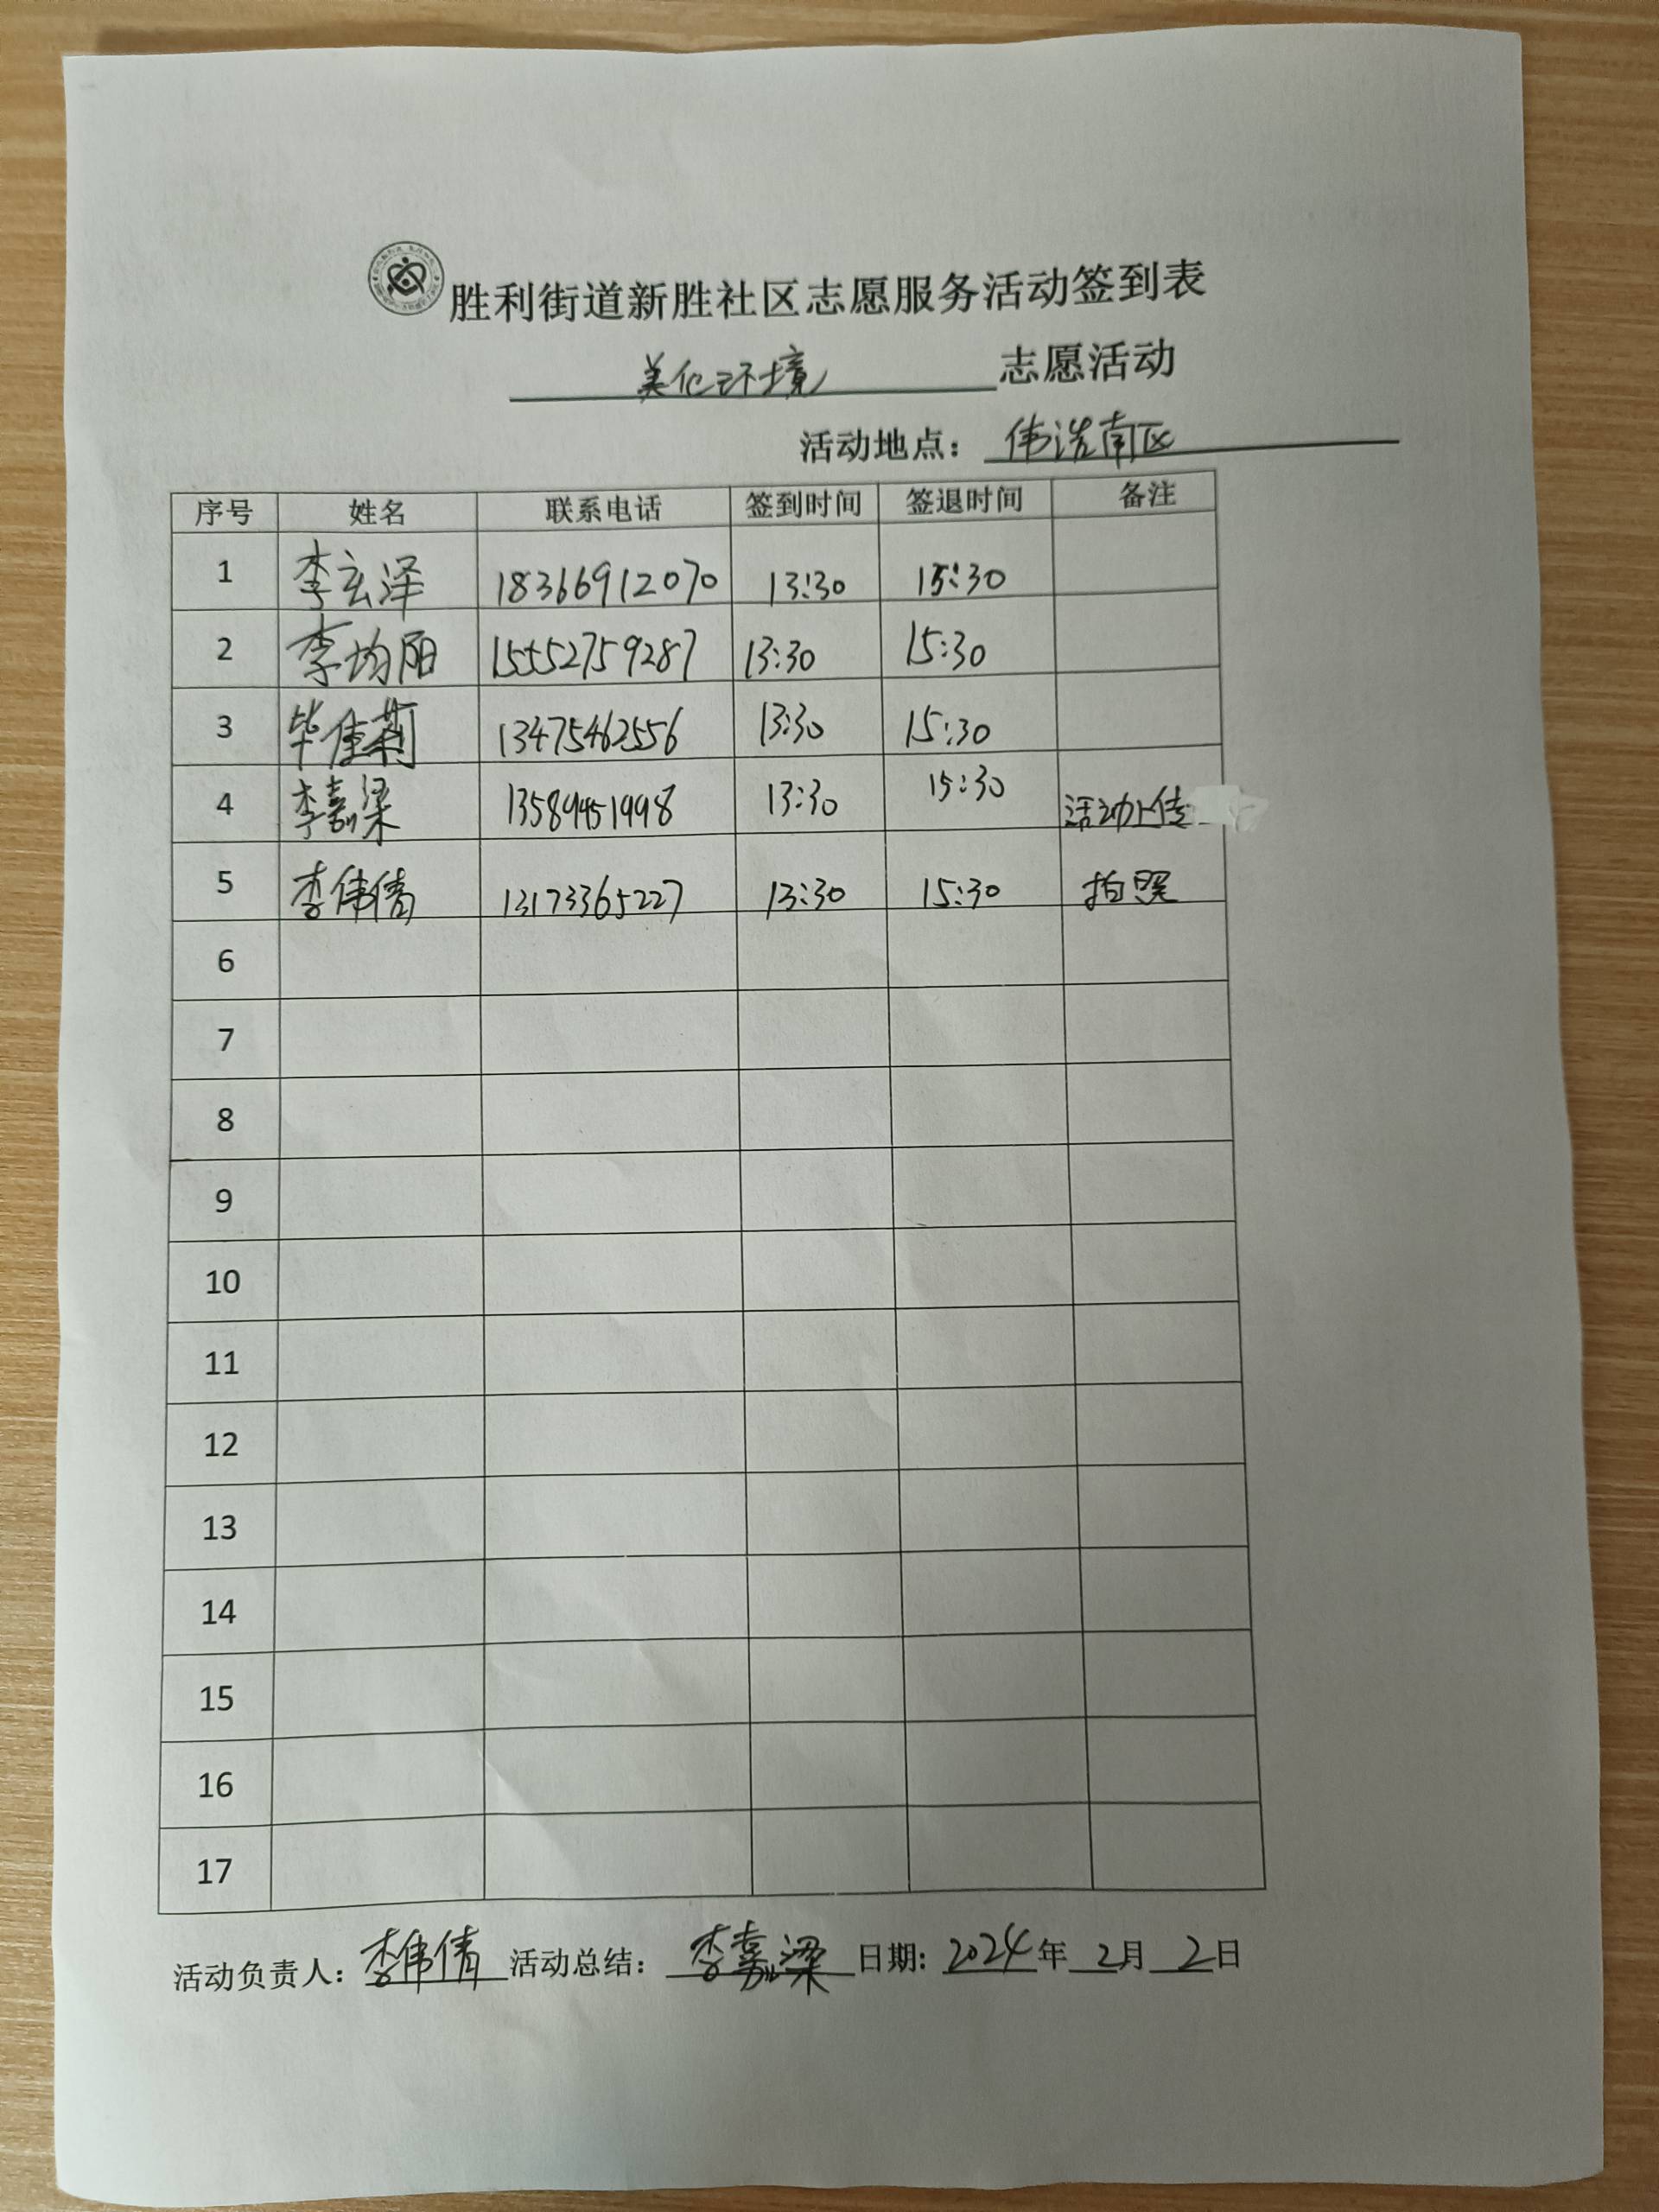 胜利街道新胜社区志愿服务活动签到表
美化环境 志愿活动
活动地点： 伟浩南区
序号 姓名 联系电话 签到时间 签退时间 备注
1 李玄泽 18366912070 13:30 15:30
2 李均阳 15552759287 13:30 15:30
3 毕佳莉 13475462556 13:30 15:30
4 李嘉梁 13589451998 13:30 15:30 活动上传
5 李伟倩 13173365227 13:30 15:30 拍照
6
7
8
9
10
11
12
13
14
15
16
17
活动负责人：李伟倩 活动总结：李嘉梁 日期：2024年2月2日